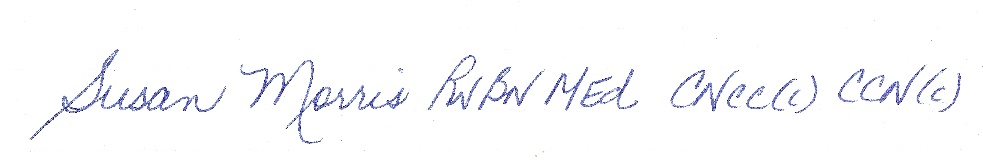 Susan Morris RN BN MEd CNCC(C) CCN(C)